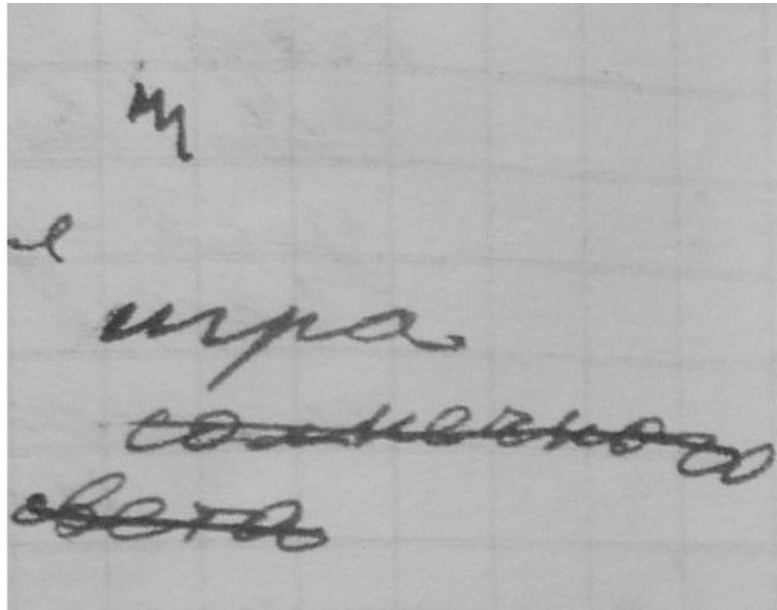 е
игра
солнечного
света